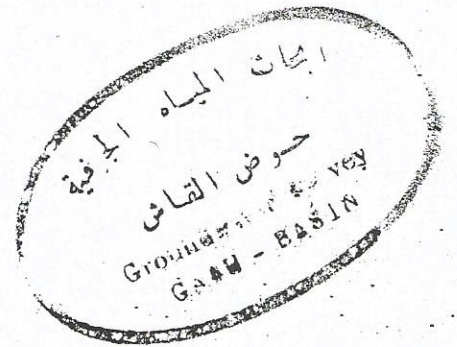 ابحاث المياه الجوفية
حوض القاش
Groundwater Survey
GASH - BASIN